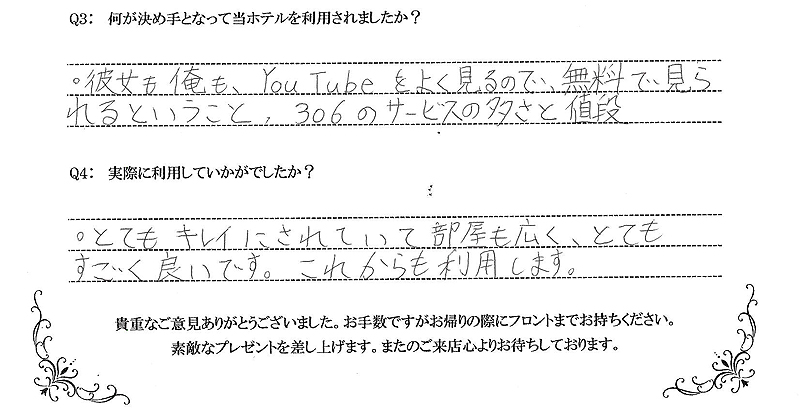 Q3： 何が決め手となって当ホテルを利用されましたか？
。彼女も俺も、YouTubeをよく見るので、無料で見ら
れるということ，306のサービスの多さと値段
Q4： 実際に利用していかがでしたか？
。とてもキレイにされていて部屋も広く、とても
すごく良いです。これからも利用します。
貴重なご意見ありがとうございました。お手数ですがお帰りの際にフロントまでお持ちください。
素敵なプレゼントを差し上げます。またのご来店心よりお待ちしております。